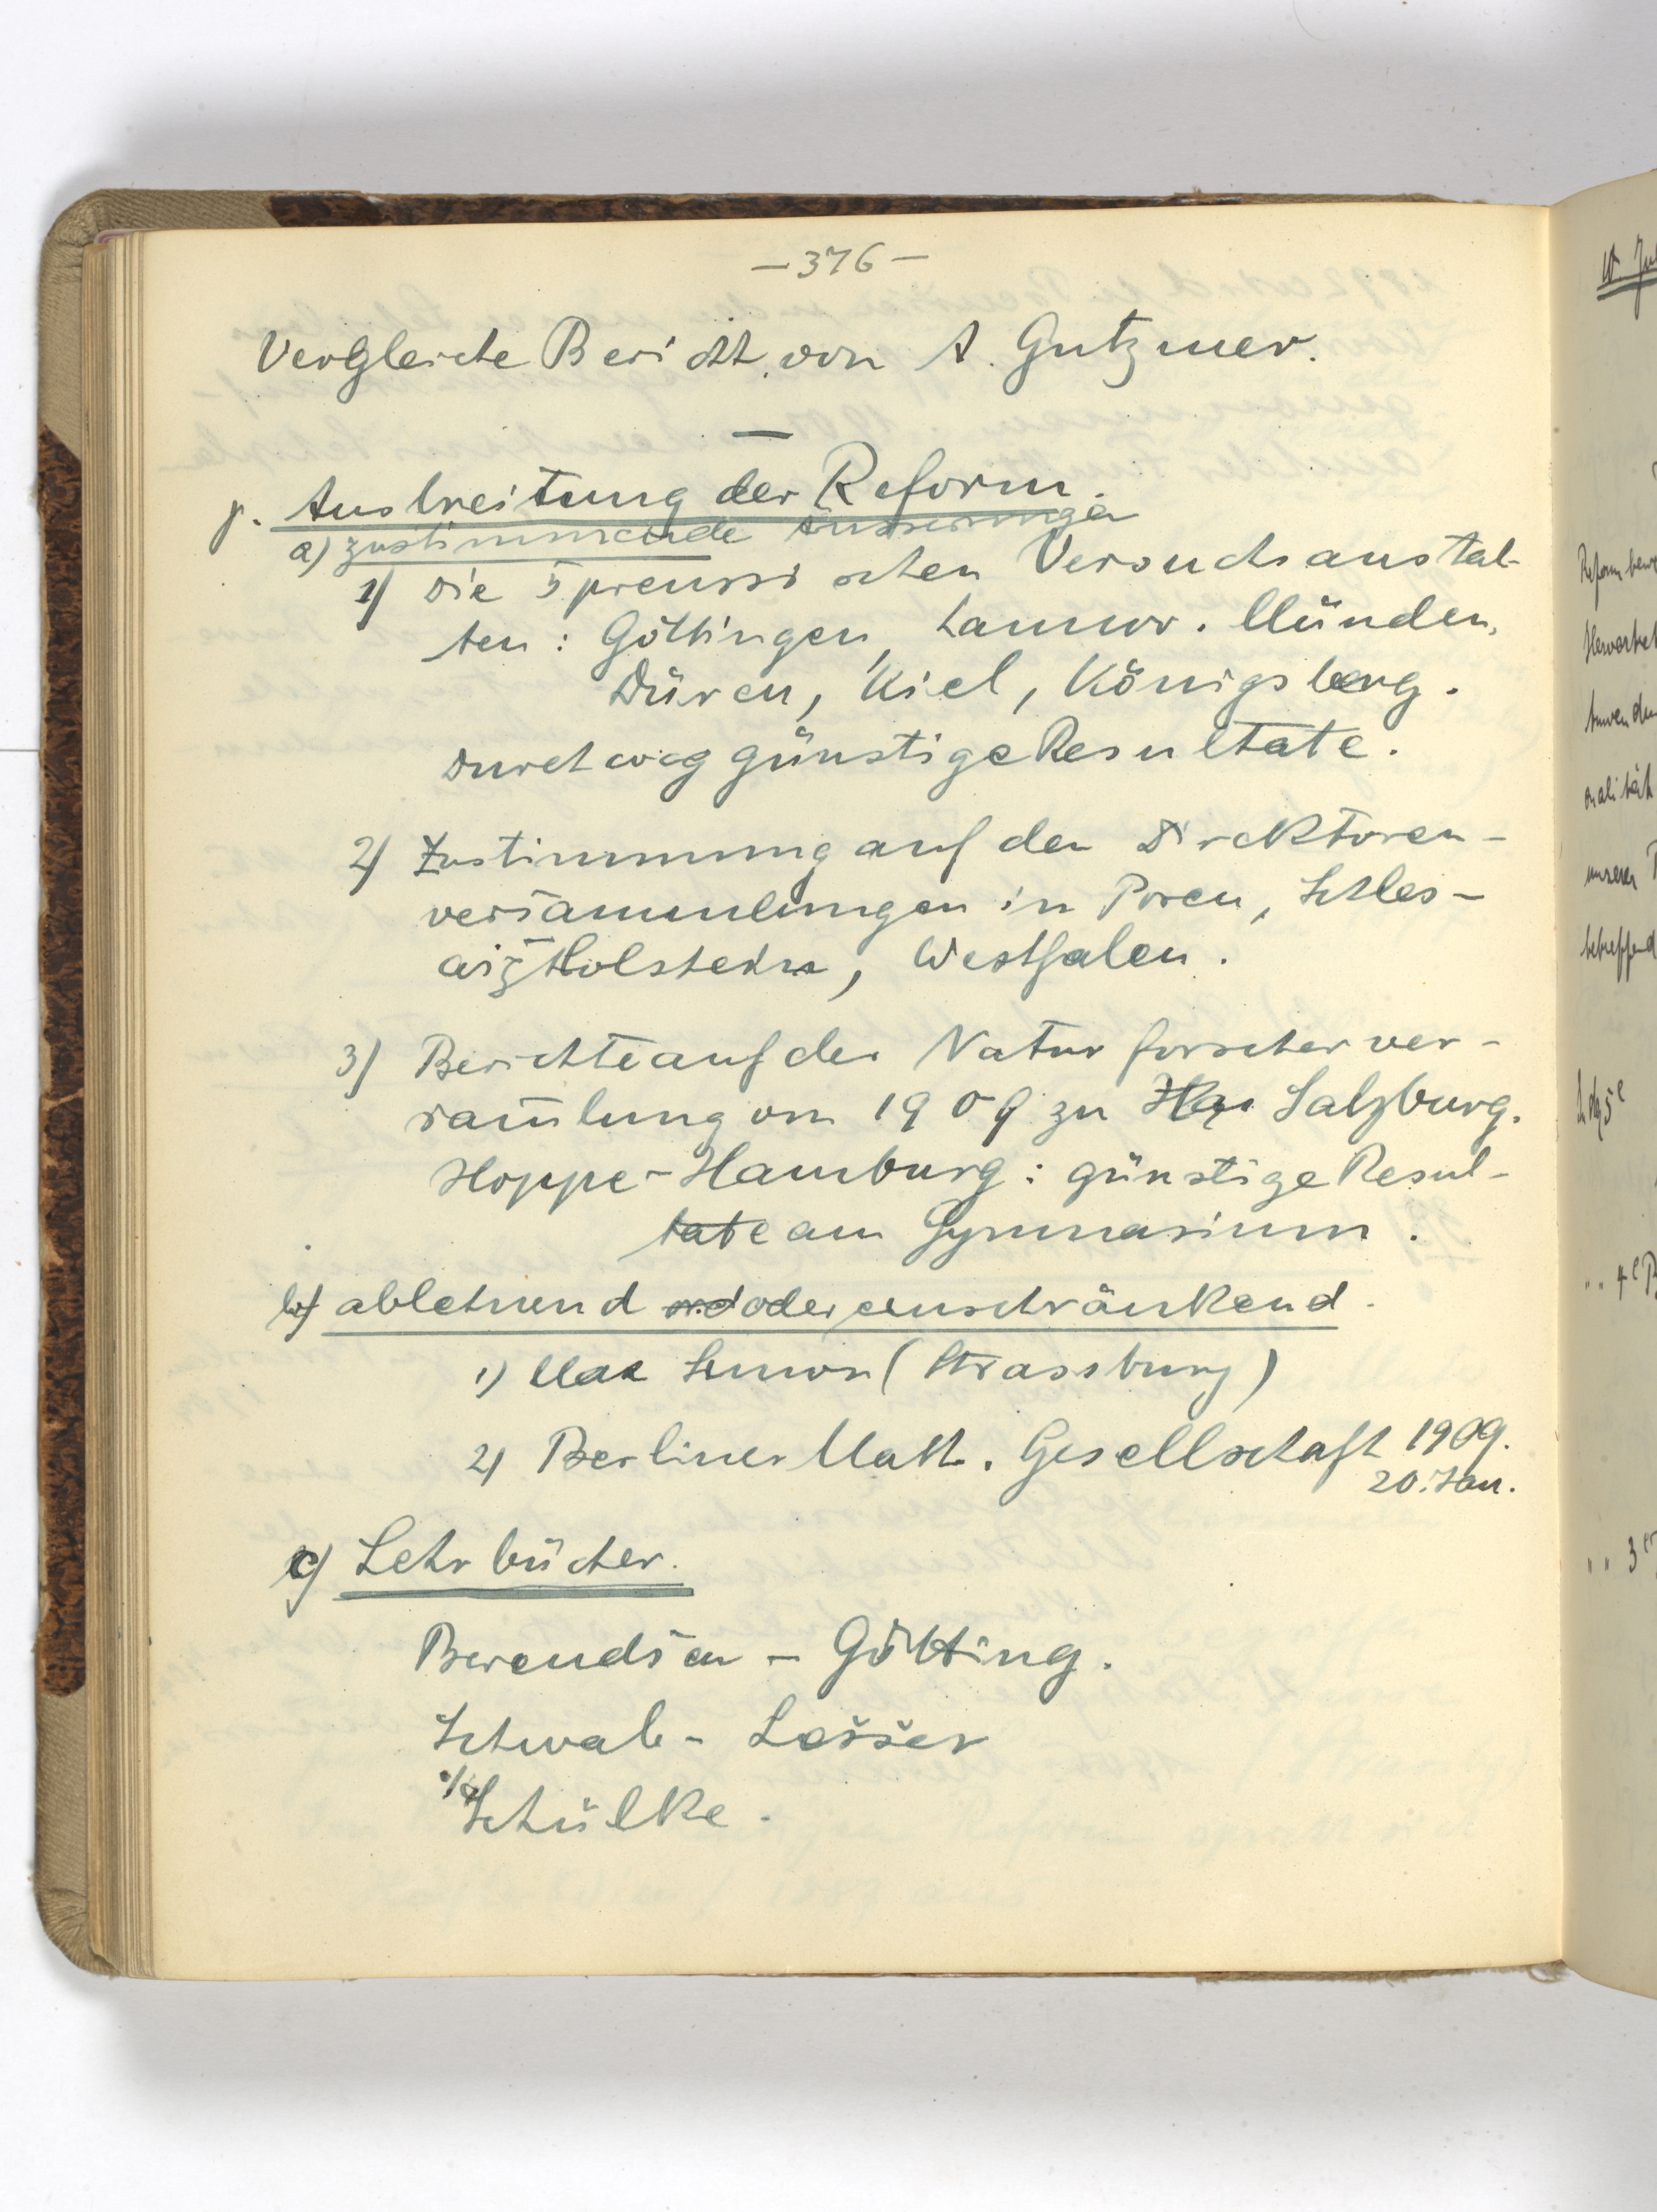 — 376 —
Vergleiche Bericht von A. Gutzmer.
—
γ. Ausbreitung der Reform.
a) zustimmende Äusserungen
1) Die 5 preussischen Versuchsanstal-
ten: Göttingen, Hannov. Münden,
Düren, Kiel, Königsberg.
Durchweg günstige Resultate.
2) Zustimmung auf den Direktoren-
versammlungen in Posen, Schles-
wig Holstein, Westfalen.
3) Berichte auf der Naturforscherver-
sam̅lung von 1909 zu Salzburg.
Hoppe-Hamburg: günstige Resul-
tate am Gymnasium.
b) ablehnend oder einschränkend.
1) Max Simon (Strassburg)
2) Berliner Math. Gesellschaft 1909.
20. Jan.
c) Lehrbücher.
Berendsen - Götting.
Schwab - Lesser
Schülke.
W. Jul
Reformbewe
Hervortret
Anwenden
onalität
unserer
betreffend